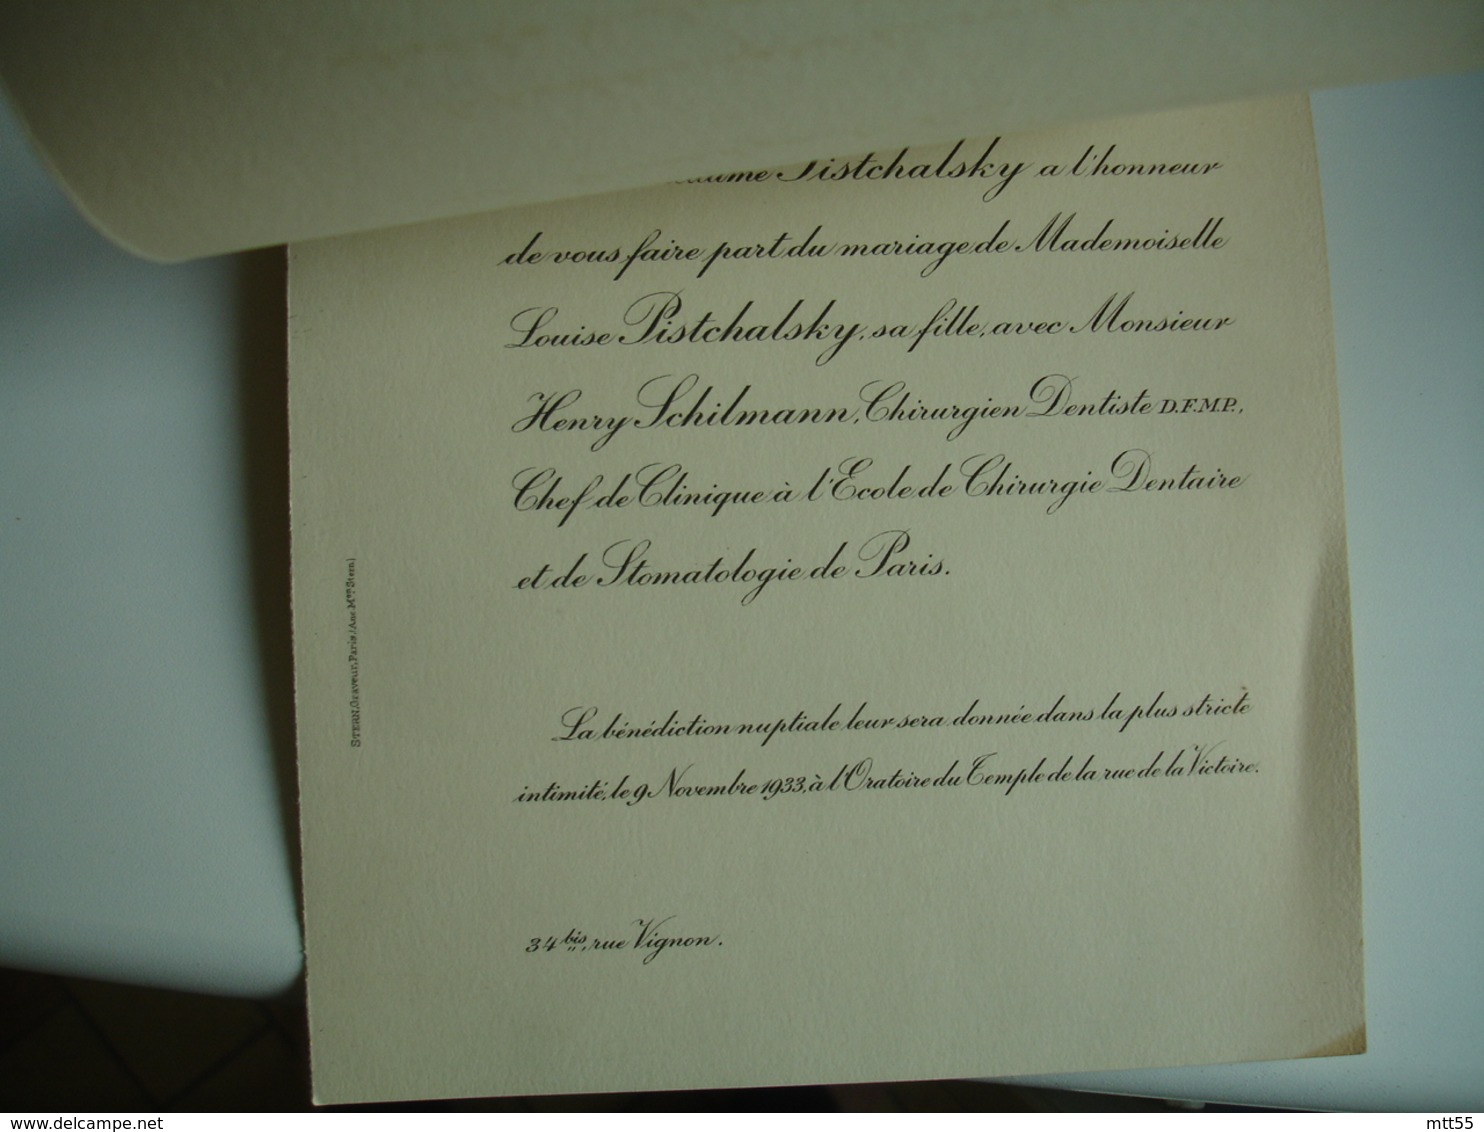 Pistchalsky a l'honneur
de vous faire part du mariage de Mademoiselle
Louise Pistchalsky, sa fille, avec Monsieur
Henry Schilmann, Chirurgien Dentiste D.F.M.P.,
Chef de Clinique à l'Ecole de Chirurgie Dentaire
et de Stomatologie de Paris.
La bénédiction nuptiale leur sera donnée dans la plus stricte
intimité, le 9 Novembre 1933, à l'Oratoire du Temple de la rue de la Victoire.
34 bis, rue Vignon.
STERN, Graveur, Paris (Anc. Mon Stern)
mtt55